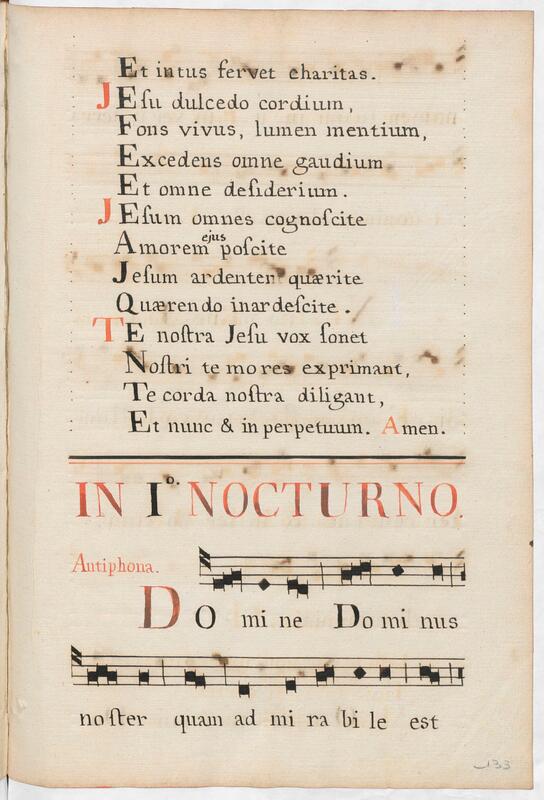 Et intus fervet charitas.
JEſu dulcedo cordium,
Fons vivus, lumen mentium,
Excedens omne gaudium
Et omne deſiderium.
JEſum omnes cognoſcite
Amorem ejus poſcite
Jeſum ardenter quærite
Quærendo inardeſcite.
TE noſtra Jeſu vox ſonet
Noſtri te mores exprimant,
Te corda noſtra diligant,
Et nunc & in perpetuum. Amen.
IN Iº. NOCTURNO.
Antiphona.
DO mi ne Do mi nus
no ſter quam ad mi ra bi le est
133